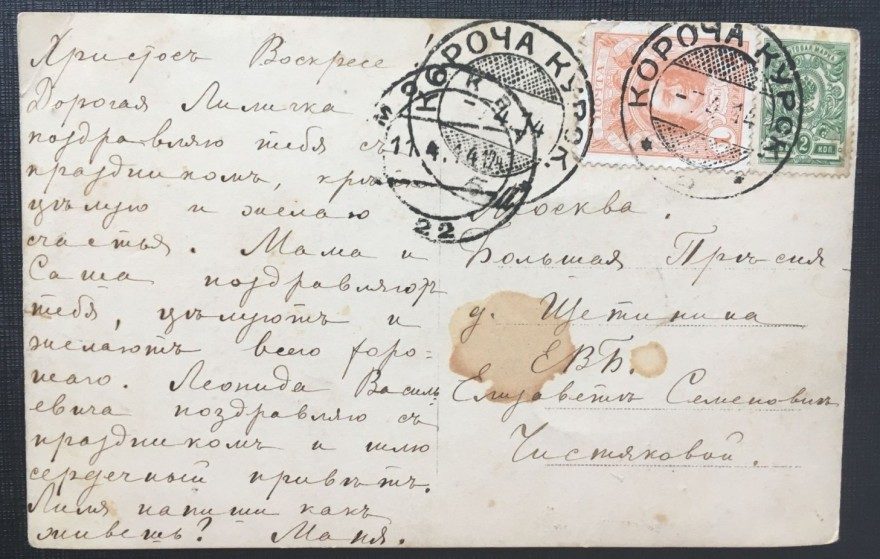 Христосъ Воскресе!
Дорогая Лиличка
поздравляю тебя съ
праздникомъ, крѣ
цѣлую и желаю
счастья. Мама и
Саша поздравляютъ
тебя, цѣлуютъ и
желаютъ всего хоро-
шаго. Леонида Василь
евича поздравляю съ
праздникомъ и шлю
сердечный привѣтъ.
Лиля напиши какъ
живешь? Маня.
КОРОЧА КУРСК.
КОРОЧА КУРСК.
11.4.14
22
1
2 КОП.
Москва.
Большая Прѣсня
д. Щетинина
ЕВБ.
Елизаветѣ Семеновнѣ
Чистяковой.